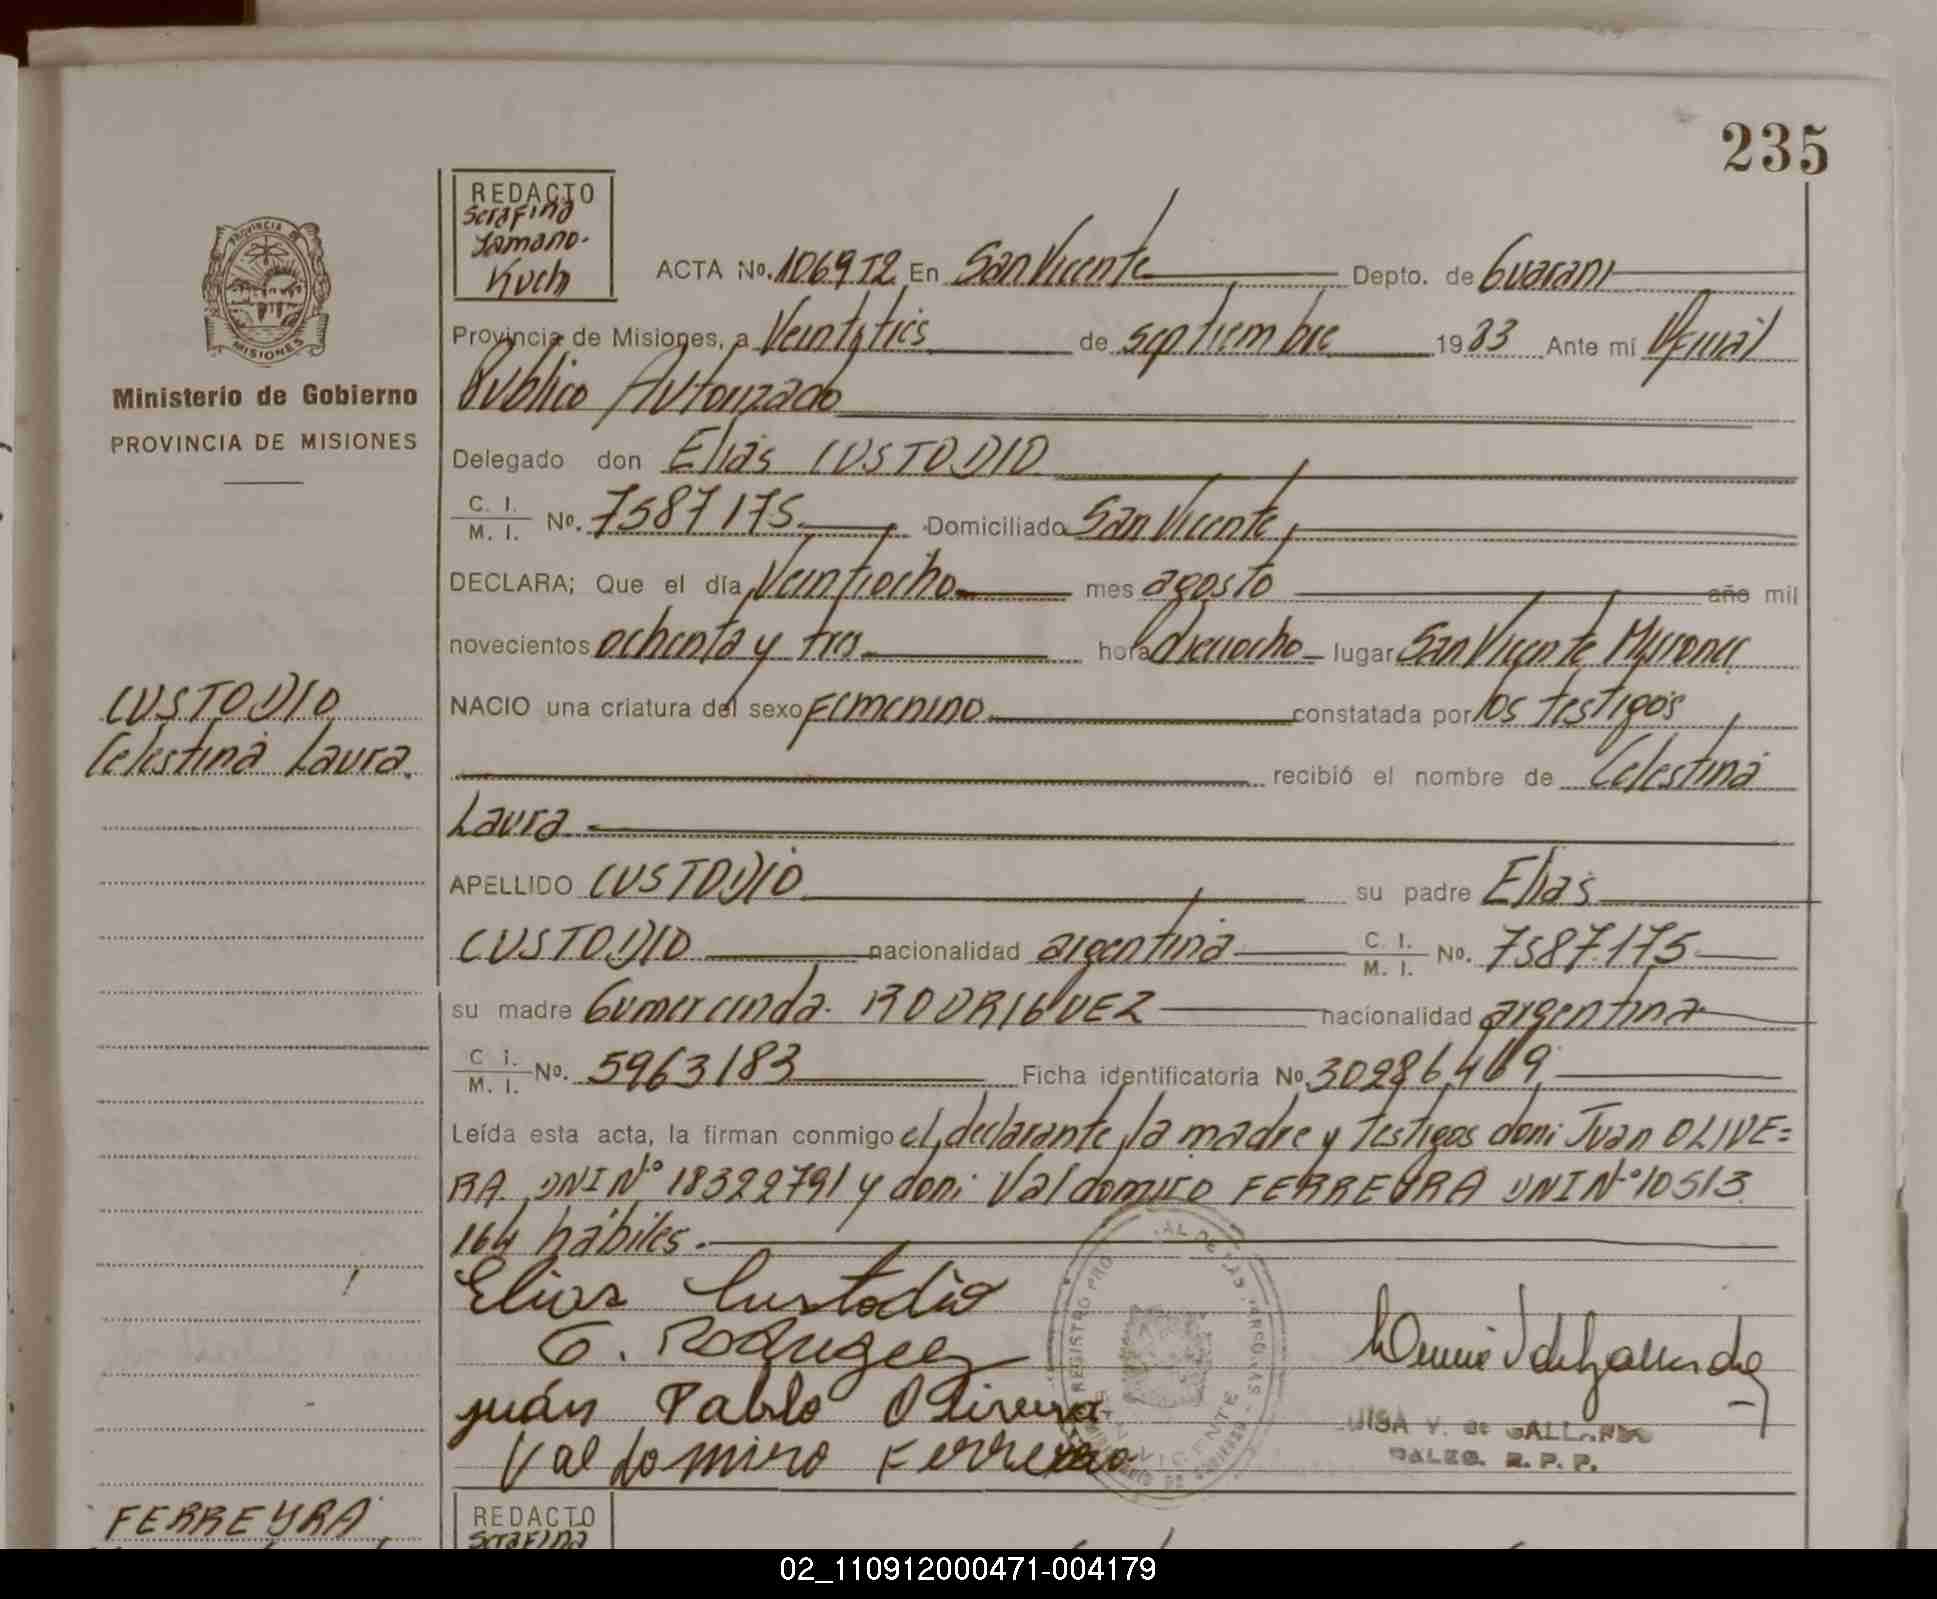 235
REDACTO
Serafina
Zamano-
Kuch
ACTA No. 1069T2 En San Vicente Depto. de Guaraní
Provincia de Misiones, a Veintitrés de septiembre 1983 Ante mí Oficial
Público Autorizado
PROVINCIA DE
MISIONES
Ministerio de Gobierno
PROVINCIA DE MISIONES
Delegado don Elías CUSTODIO
C. I.
M. I. No. 7587175 Domiciliado San Vicente
DECLARA; Que el día Veintiocho mes agosto año mil
novecientos ochenta y tres hora dieciocho lugar San Vicente Misiones
CUSTODIO
Celestina Laura.
NACIO una criatura del sexo Femenino constatada por los testigos
recibió el nombre de Celestina
Laura
APELLIDO CUSTODIO su padre Elías
CUSTODIO nacionalidad argentina C. I. M. I. No. 7587.175
su madre Gumercinda. RODRIGUEZ nacionalidad argentina
C. I.
M. I. No. 5963183 Ficha identificatoria No 30286469
Leída esta acta, la firman conmigo el declarante, la madre y testigos don: Juan OLIVE=
RA DNI Nº 18322791 y don: Valdomiro FERREYRA DNI Nº 10513
164 hábiles.-
Elias Custodio
G. Rodriguez
Juán Pablo Olivera
Valdomiro Ferreyra
REGISTRO PRO AL DE LAS PERSONAS
SAN VICENTE
UISA V. de GALLARDO
DALEG. R. P. P.
FERREYRA
REDACTO
Serafina
02_110912000471-004179